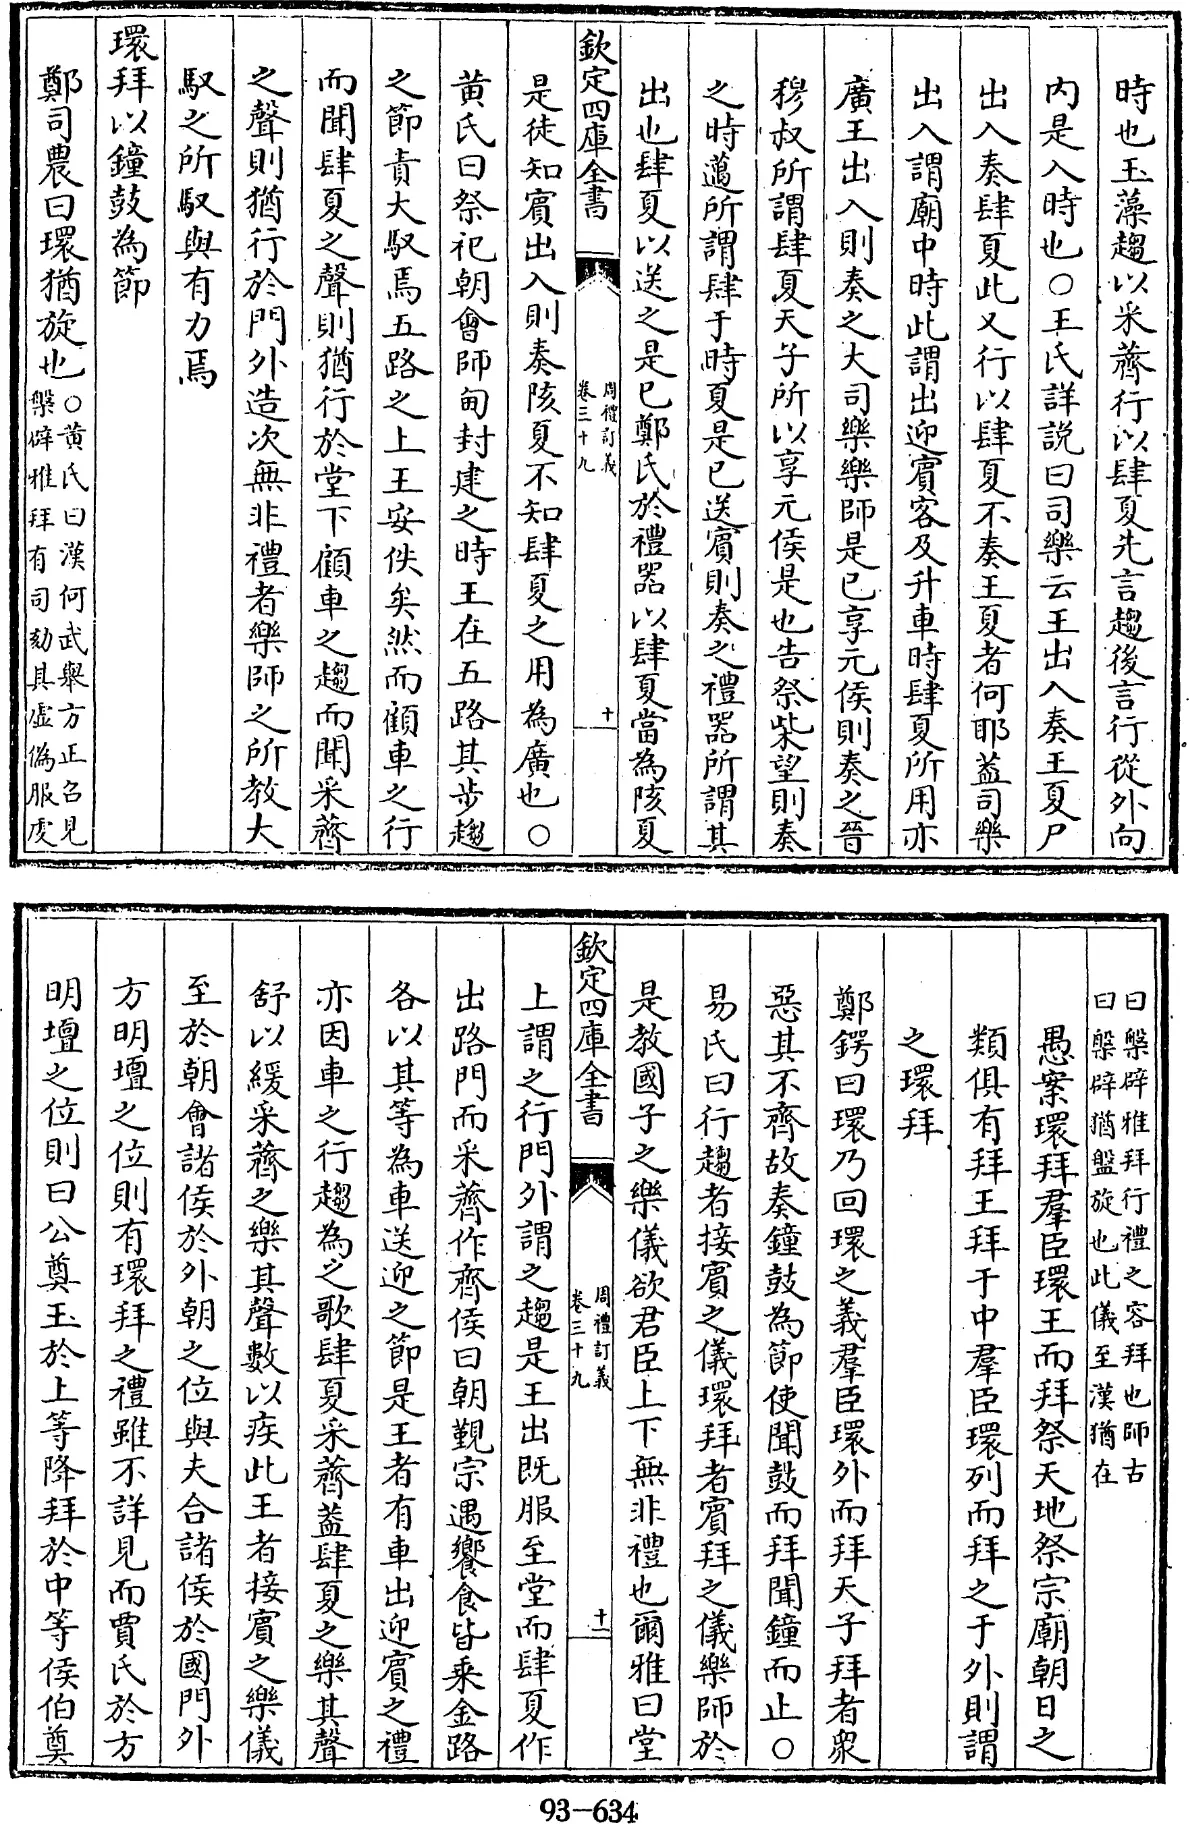 時也玉藻趨以采薺行以肆夏先言趨後言行從外向
内是入時也○王氏詳説曰司樂云王出入奏王夏尸
出入奏肆夏此又行以肆夏不奏王夏者何耶蓋司樂
出入謂廟中時此謂出迎賓客及升車時肆夏所用亦
廣王出入則奏之大司樂樂師是已享元侯則奏之晉
穆叔所謂肆夏天子所以享元侯是也告祭柴望則奏
之時邁所謂肆于時夏是已送賓則奏之禮器所謂其
出也肆夏以送之是已鄭氏於禮器以肆夏當為陔夏
欽定四庫全書
周禮訂義
卷三十九
十
是徒知賓出入則奏陔夏不知肆夏之用為廣也○
黄氏曰祭祀朝會師甸封建之時王在五路其步趨
之節責大馭焉五路之上王安佚矣然而顧車之行
而聞肆夏之聲則猶行於堂下顧車之趨而聞采薺
之聲則猶行於門外造次無非禮者樂師之所教大
馭之所馭與有力焉
環拜以鐘鼓為節
鄭司農曰環猶旋也○黄氏曰漢何武舉方正召見
槃辟雅拜有司劾具虛偽服虔
曰槃辟雅拜行禮之容拜也師古
曰槃辟猶盤旋也此儀至漢猶在
愚案環拜羣臣環王而拜祭天地祭宗廟朝日之
類俱有拜王拜于中羣臣環列而拜之于外則謂
之環拜
鄭鍔曰環乃回環之義羣臣環外而拜天子拜者衆
惡其不齊故奏鐘鼓為節使聞鼓而拜聞鐘而止○
易氏曰行趨者接賓之儀環拜者賓拜之儀樂師於
是教國子之樂儀欲君臣上下無非禮也爾雅曰堂
欽定四庫全書
周禮訂義
卷三十九
十一
上謂之行門外謂之趨是王出既服至堂而肆夏作
出路門而采薺作齊侯曰朝覲宗遇饗食皆乘金路
各以其等為車送迎之節是王者有車出迎賓之禮
亦因車之行趨為之歌肆夏采薺蓋肆夏之樂其聲
舒以緩采薺之樂其聲數以疾此王者接賓之樂儀
至於朝會諸侯於外朝之位與夫合諸侯於國門外
方明壇之位則有環拜之禮雖不詳見而賈氏於方
明壇之位則曰公奠玉於上等降拜於中等侯伯奠
93-634